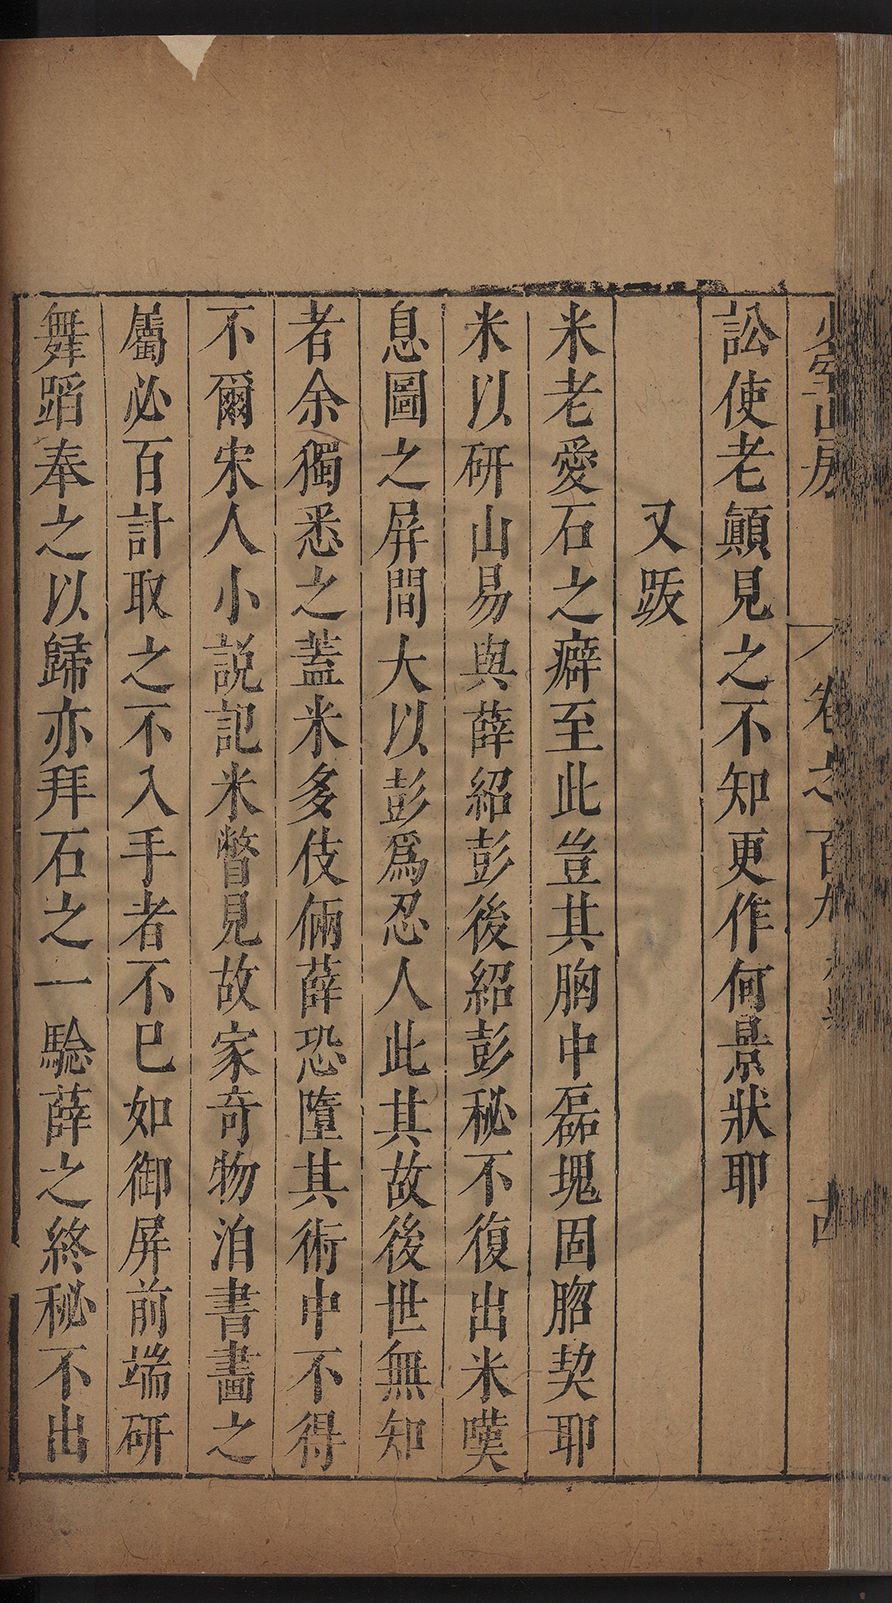 少室山房
卷之百九
訟使老顛見之不知更作何景狀耶
又跋
米老愛石之癖至此豈其胸中磊塊固脗契耶
米以研山易與薛紹彭後紹彭秘不復出米嘆
息圖之屏間大以彭爲忍人此其故後世無知
者余獨悉之蓋米多伎倆薛恐墮其術中不得
不爾宋人小說記米瞥見故家奇物洎書畫之
屬必百計取之不入手者不已如御屏前端研
舞蹈奉之以歸亦拜石之一驗薛之終秘不出